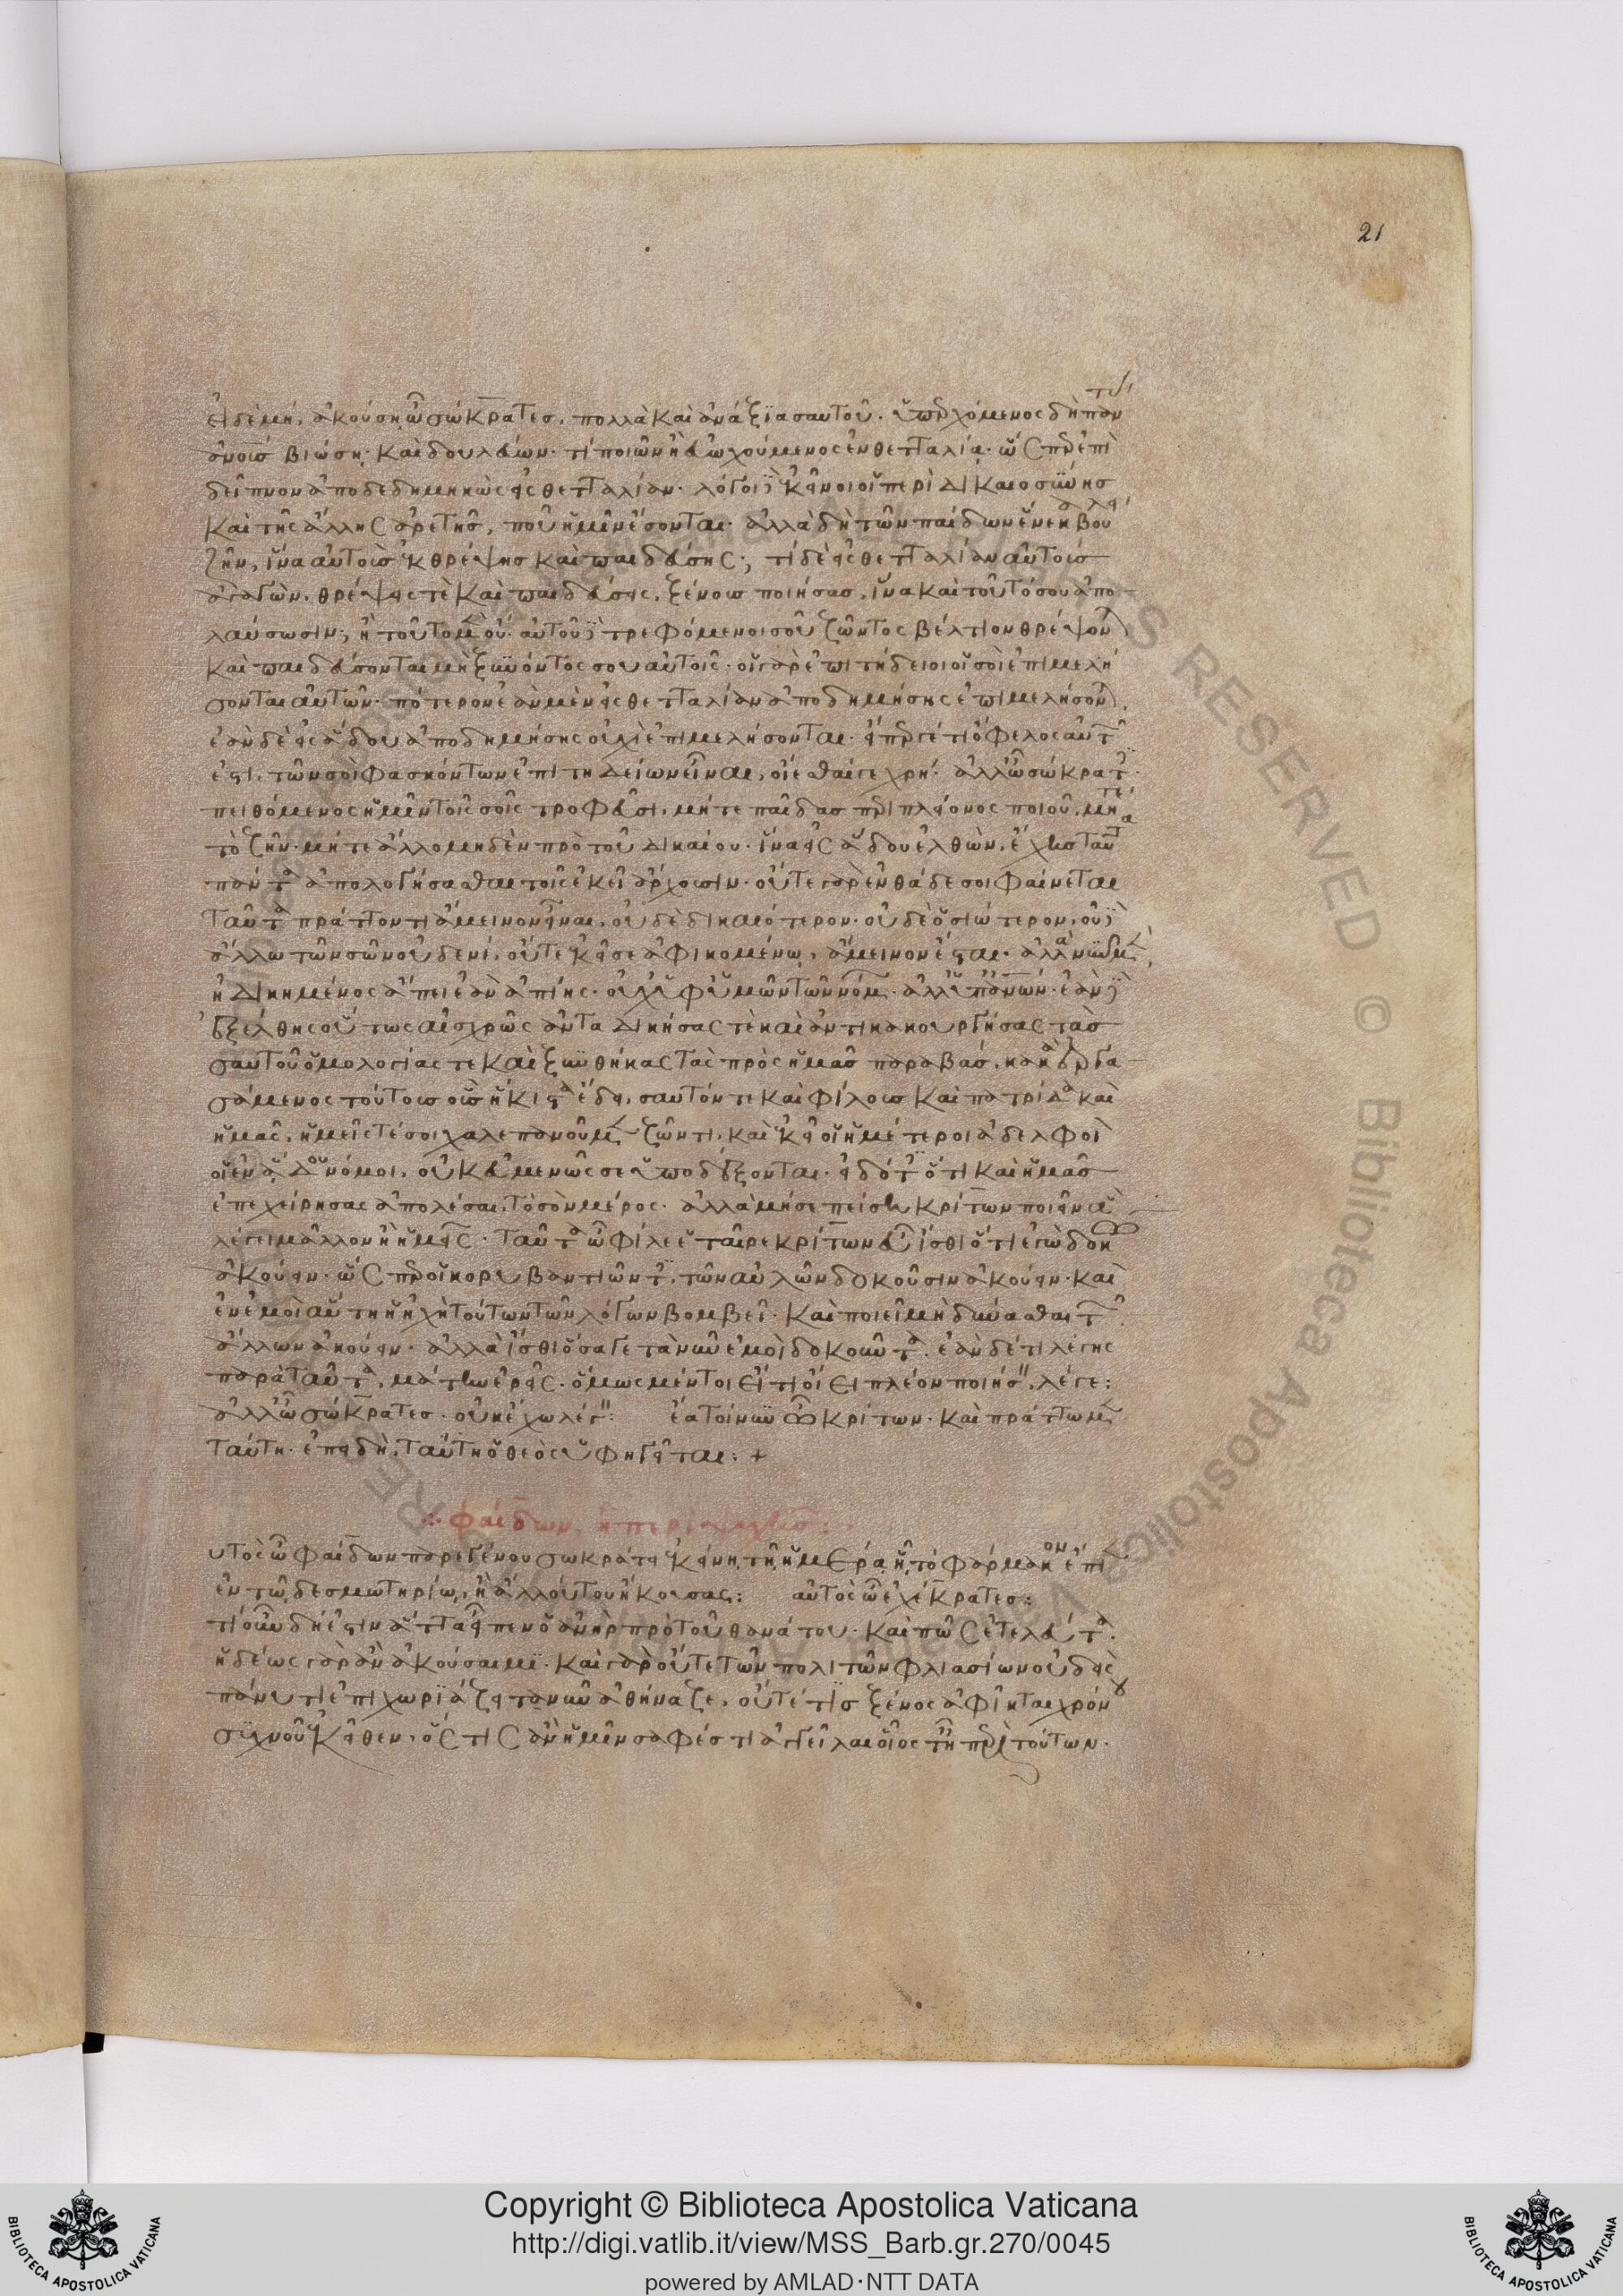 21
εἰ δὲ μή, ἀκούση ὦ σώκρατεσ, πολλὰ καὶ ἀνάξϊα σαυτοῦ. ὑπερχόμενος δὴ πάν
ἀνοῖσ βιώση. καὶ δουλεύων. τί ποιῶν ἢ εὐωχούμενος ἐν θετταλία. ὥσπερ ἐπὶ
δεῖπνον ἀποδεδημηκὼς εἰς θετταλίαν. λόγοι δὲ ἐκεῖνοι οἱ περὶ δικαιοσύνησ
καὶ τῆς ἄλλης ἀρετῆσ, ποῦ ἡμῖν ἔσονται. ἀλλὰ δὴ τῶν παίδων ἕνεκα βού
ζῆν, ἵνα αὐτοὺσ ἐκθρέψησ καὶ παιδεύσης; τί δὲ εἰς θετταλίαν αὐτοὺσ
ἀγαγὼν. θρέψεις τὲ καὶ παιδεύσεις, ξένουσ ποιήσασ, ἵνα καὶ τοῦτό σου ἀπο
λαύσωσιν; ἢ τοῦτο μὲν οὔ. αὐτοῦ δὲ τρεφόμενοι σοῦ ζῶντος βέλτιον θρέψον
καὶ παιδεύσονται μὴ ξυνόντος σου αὐτοῖς. οἱ γὰρ ἐπιτήδειοι οἱ σοὶ ἐπιμελή
σονται αὐτῶν. πότερον ἐὰν μὲν εἰς θετταλίαν ἀποδημήσης ἐπιμελήσον
ἐὰν δὲ εἰς ἅδου ἀποδημήσης οὐχὶ ἐπιμελήσονται. εἴπερ γέ τι ὄφελος αὐτ
ἐστι, τῶν σοὶ φασκόντων ἐπιτηδείων εἶναι, οἴεσθαί γε χρή. ἀλλ' ὦ σώκρατ
πειθόμενος ἡμῖν τοῖς σοῖς τροφεῦσι, μήτε παῖδασ περὶ πλείονος ποιοῦ, μήτε
τὸ ζῆν. μήτε ἄλλο μηδὲν πρὸ τοῦ δικαίου. ἵνα εἰς ἅδου ἐλθὼν, ἔχης ταῦτα
πάντα ἀπολογήσασθαι τοῖς ἐκεῖ ἄρχουσιν. οὔτε γὰρ ἐνθάδε σοι φαίνεται
ταῦτα πράττοντι ἄμεινον εἶναι, οὐδὲ δικαιότερον. οὐδὲ ὁσιώτερον, οὐδὲ
ἄλλω τῶν σῶν οὐδενί, οὔτε ἐκεῖσε ἀφικομένω, ἄμεινον ἔσται. ἀλλὰ νῦν μὲν
ἠδικημένος ἄπει ἐὰν ἀπίης. οὐχ ὑφ' ὑμῶν τῶν νόμ. ἀλλ' ὑπ' ἀνων. ἐὰν δὲ
ἐξέλθης οὕτως αἰσχρῶς ἀνταδικήσας τὲ καὶ ἀντικακουργήσας τὰσ
σαυτοῦ ὁμολογίας τε καὶ ξυνθήκας τὰς πρὸς ἡμᾶσ παραβάσ, κακὰ ἐργα
σάμενος τούτουσ οὓς ἥκιστα ἔδει, σαυτόν τε καὶ φίλουσ καὶ πατρίδα καὶ
ἡμᾶς, ἡμεῖς τέ σοι χαλεπανοῦμεν ζῶντι, καὶ ἐκεῖ οἱ ἡμέτεροι ἀδελφοὶ
οἱ ἐν ἅδου νόμοι, οὐκ εὐμενῶς σε ὑποδέξονται. εἰδότες ὅτι καὶ ἡμᾶσ
ἐπεχείρησας ἀπολέσαι, τὸ σὸν μέρος. ἀλλὰ μή σε πείση κρίτων ποιεῖν ἃ
λέγει μᾶλλον ἢ ἡμεῖς. ταῦτα ὦ φίλε ἑταῖρε κρίτων εὖ ἴσθι ὅτι ἐγὼ δοκῶ
ἀκούειν. ὥσπερ οἱ κορυβαντιῶντες, τῶν αὐλῶν δοκοῦσιν ἀκούειν. καὶ
ἐν ἐμοὶ αὕτη ἡ ἠχὴ τούτων τῶν λόγων βομβεῖ. καὶ ποιεῖ μὴ δύνασθαι τῶν
ἄλλων ἀκούειν. ἀλλὰ ἴσθι ὅσα γε τὰ νῦν ἐμοὶ δοκοῦντα. ἐὰν δέ τι λέγης
παρὰ ταῦτα, μάτην ἐρεῖς. ὅμως μέντοι εἴ τι οἴει πλέον ποιήσ, λέγε:
ἀλλ' ὦ σώκρατεσ. οὐκ ἔχω λέγ: ἔα τοίνυν ὦ κρίτων. καὶ πράττωμ
ταύτη. ἐπειδὴ, ταύτη ὁ θεὸς ὑφηγεῖται: +
φαίδων, ἢ περὶ ψυχῆσ:
υτὸς ὦ φαίδων παρεγένου σωκράτει ἐκείνη, τῆ ἡμέρα, ἧ, τὸ φάρμακον ἔπι
ἐν τῶ δεσμωτηρίω, ἢ ἄλλου του ἤκουσας: αὐτὸς ὦ ἐχέκρατεσ:
τί οὖν δή ἐστιν ἅττα εἶπεν ὁ ἀνὴρ πρὸ τοῦ θανάτου. καὶ πῶς ἐτελεύτα.
ἡδέως γὰρ ἂν ἀκούσαιμϊ. καὶ γὰρ οὔτε τῶν πολιτῶν φλιασίων οὐδεὶς
πάνυ τι ἐπιχωριάζει τανῦν ἀθήναζε, οὔτέ τϊσ ξένος ἀφῖκται χρόνου
συχνοῦ ἐκεῖθεν, ὅς τις ἂν ἡμῖν σαφέσ τι ἀγγεῖλαι οἷος τ' ἦ περὶ τούτων.
Copyright © Biblioteca Apostolica Vaticana
http://digi.vatlib.it/view/MSS_Barb.gr.270/0045
powered by AMLAD·NTT DATA